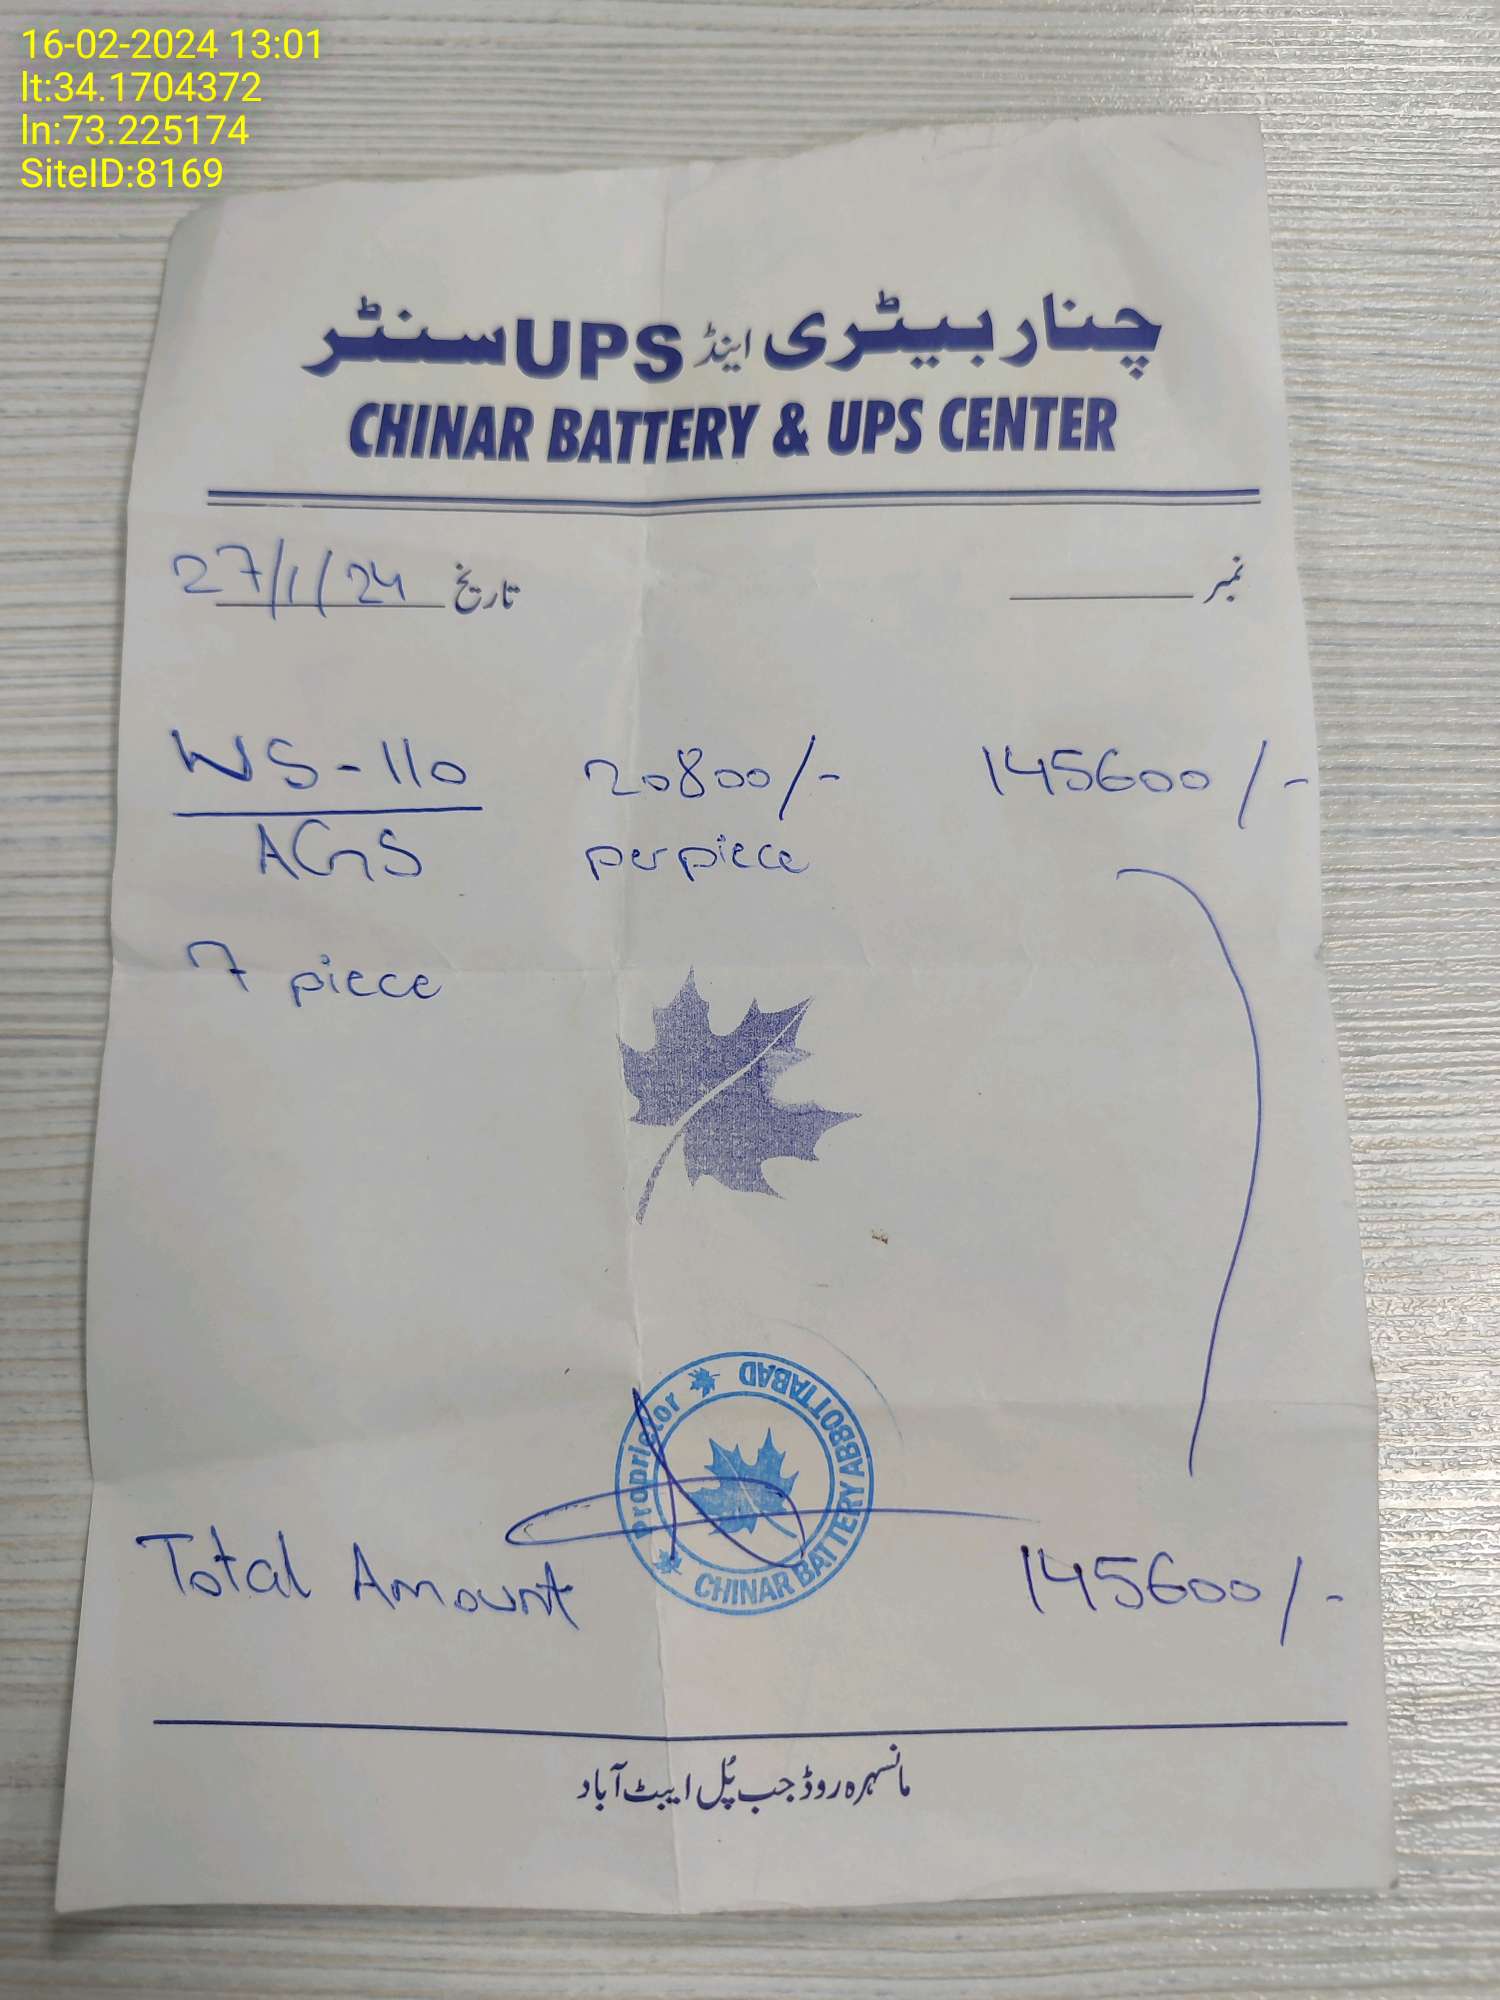 16-02-2024 13:01
lt:34.1704372
ln:73.225174
SiteID:8169
چنار بیٹری اینڈ UPS سنٹر
CHINAR BATTERY & UPS CENTER
نمبر
تاریخ 27/1/24
WS-110 20800/- 145600/-
AGS per piece
7 piece
Proprietor
CHINAR BATTERY ABBOTTABAD
Total Amount 145600/-
مانسہرہ روڈ جب پُل ایبٹ آباد